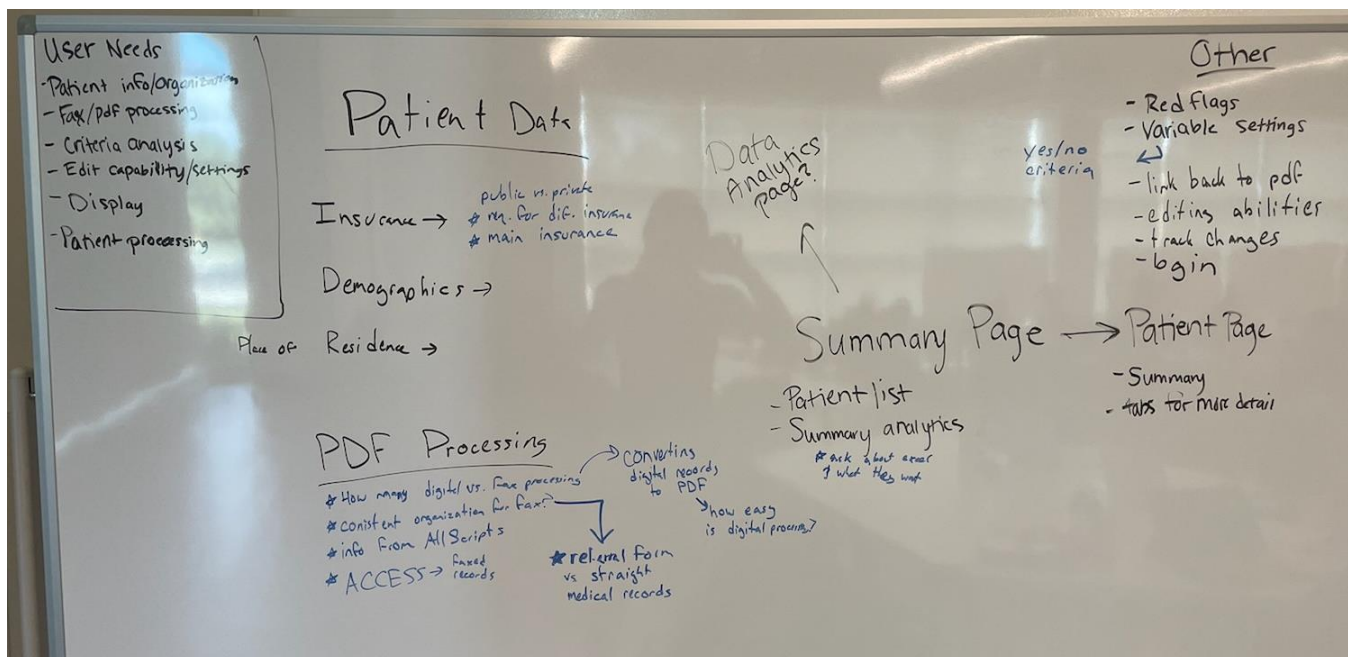 User Needs
-Patient info/organization
-Fax/pdf processing
-Criteria analysis
-Edit capability/settings
-Display
-Patient proccessing
Patient Data
Insurance →
public vs. private
* req. for dif. insurance
* main insurance
Demographics →
Place of Residence →
PDF Processing
* How many digital vs. Fax processing
* conistent organization for fax?
* info from AllScripts
* ACCESS → faxed
records
converting
digital records
to PDF
how easy
is digital process?
* referral form
vs straight
medical records
Data
Analytics
page?
Summary Page → Patient Page
- Patient list
- Summary analytics
* ask about
what they want
- Summary
- tabs for more detail
Other
- Red flags
- Variable settings
yes/no
criteria
- link back to pdf
- editing abilities
- track changes
- login